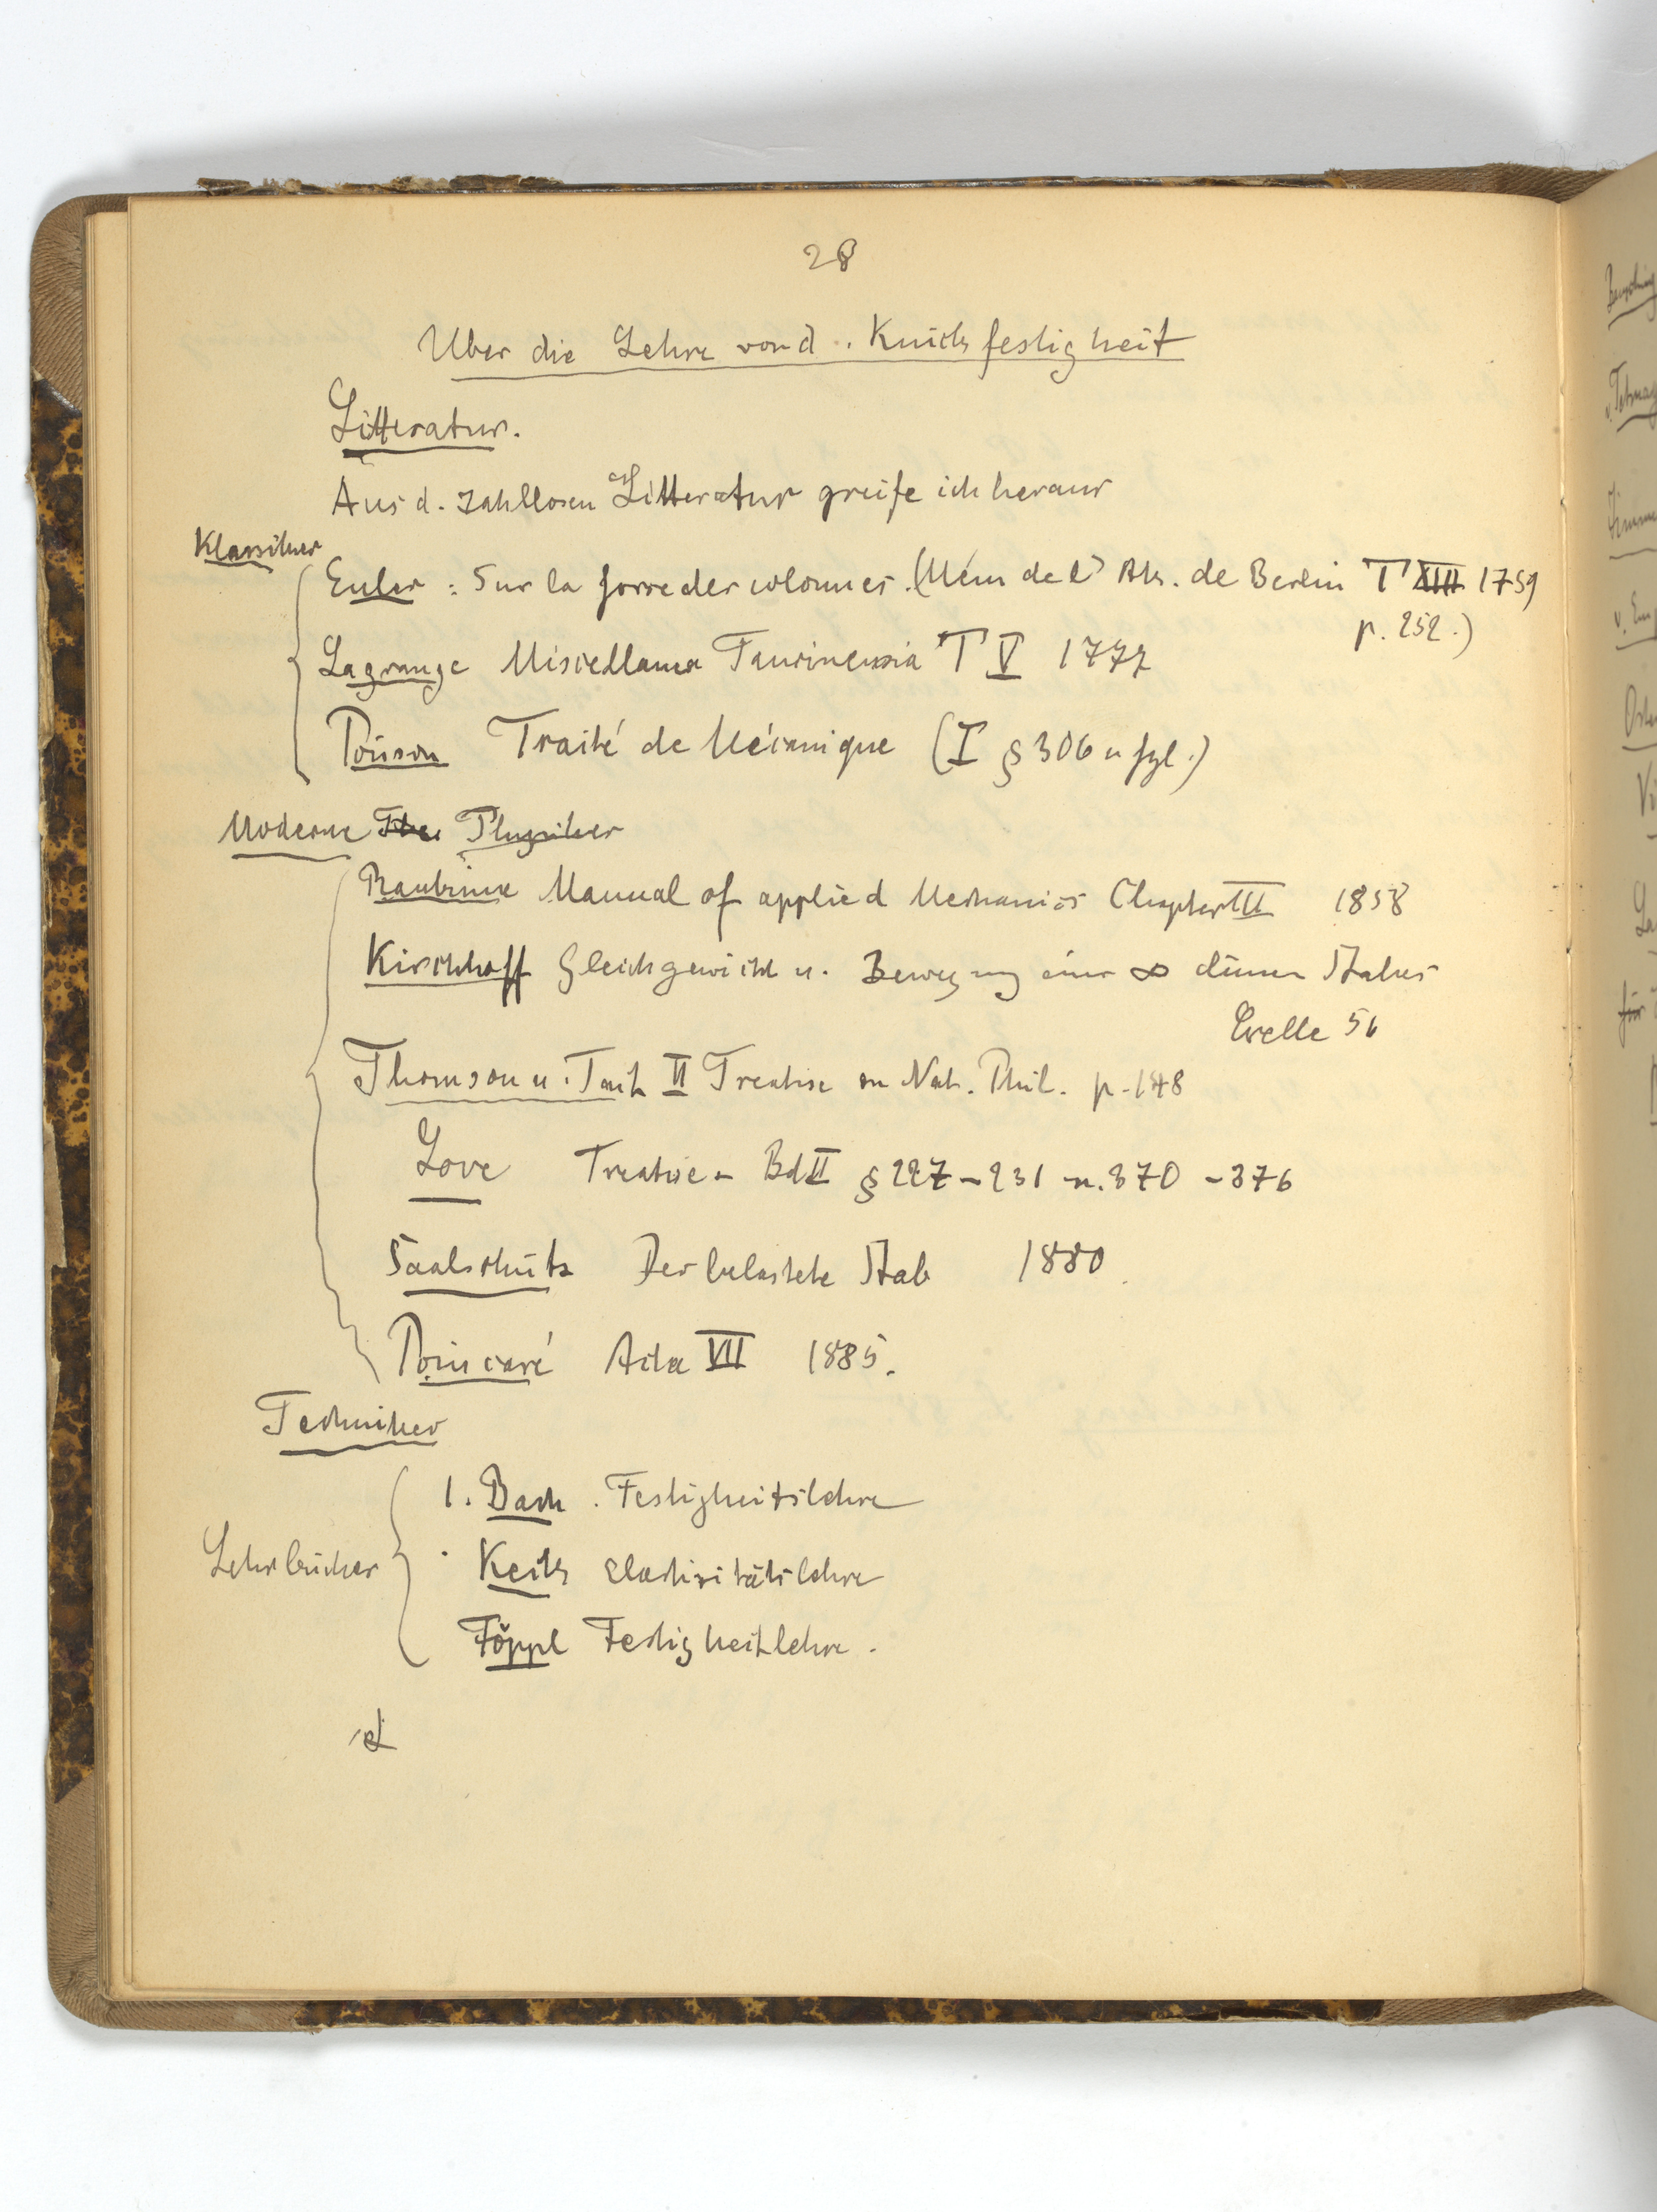 28
Uber die Lehre von d. Knickfestigkeit
Litteratur.
Aus d. zahllosen Litteratur greife ich heraus
Klassiker
Euler : Sur la force des colonnes. (Mém de l' Ak. de Berlin T XIII 1759
p. 252.)
Lagrange Miscellanea Taurinensia T V 1777
Poisson Traité de Mécanique (I § 306 u fgl.)
Moderne Physiker
Rankine Manual of applied Mechanics Chapter III 1858
Kirchhoff Gleichgewicht u. Bewegung eines ∞ dünnen Stabes
Crelle 56
Thomson u. Tait II Treatise on Nat. Phil. p. 148
Love Treatise - Bd II § 227 - 231 u. 370 - 376
Saalschütz Der belastete Stab 1880
Poincaré Acta VII 1885.
Techniker
Lehrbücher
1. Bach. Festigkeitslehre
Keck Elastizitätslehre
Föppl Festigkeitlehre.